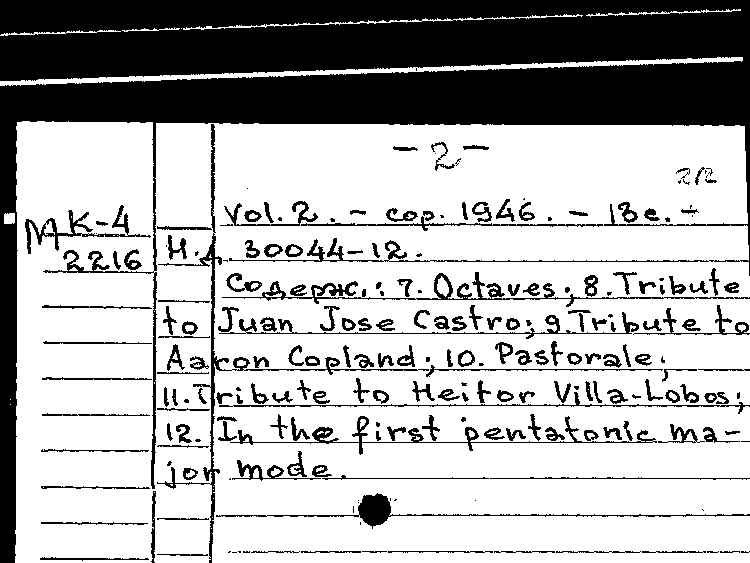 - 2 -
2/2
M K-4
2216
Vol. 2. - cop. 1946. - 13 c. -
Н.д. 30044-12.
Содерж.: 7. Octaves; 8. Tribute
to Juan Jose Castro; 9. Tribute to
Aaron Copland; 10. Pastorale;
11. Tribute to Heitor Villa-Lobos;
12. In the first pentatonic ma-
jor mode.